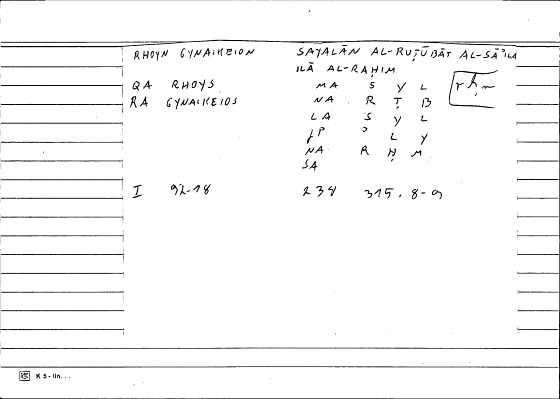 RHOYN GYNAIKEION SAYALĀN AL-RUṬŪBĀT AL-SĀʾILA
ILĀ AL-RAḤIM
QA RHOYS MA S Y L rḥm
RA GYNAIKEIOS NA R Ṭ B
LA S Y L
JP ʾ L Y
NA R Ḥ M
SA
I 92.18 238 315.8-9
K 5-lin...